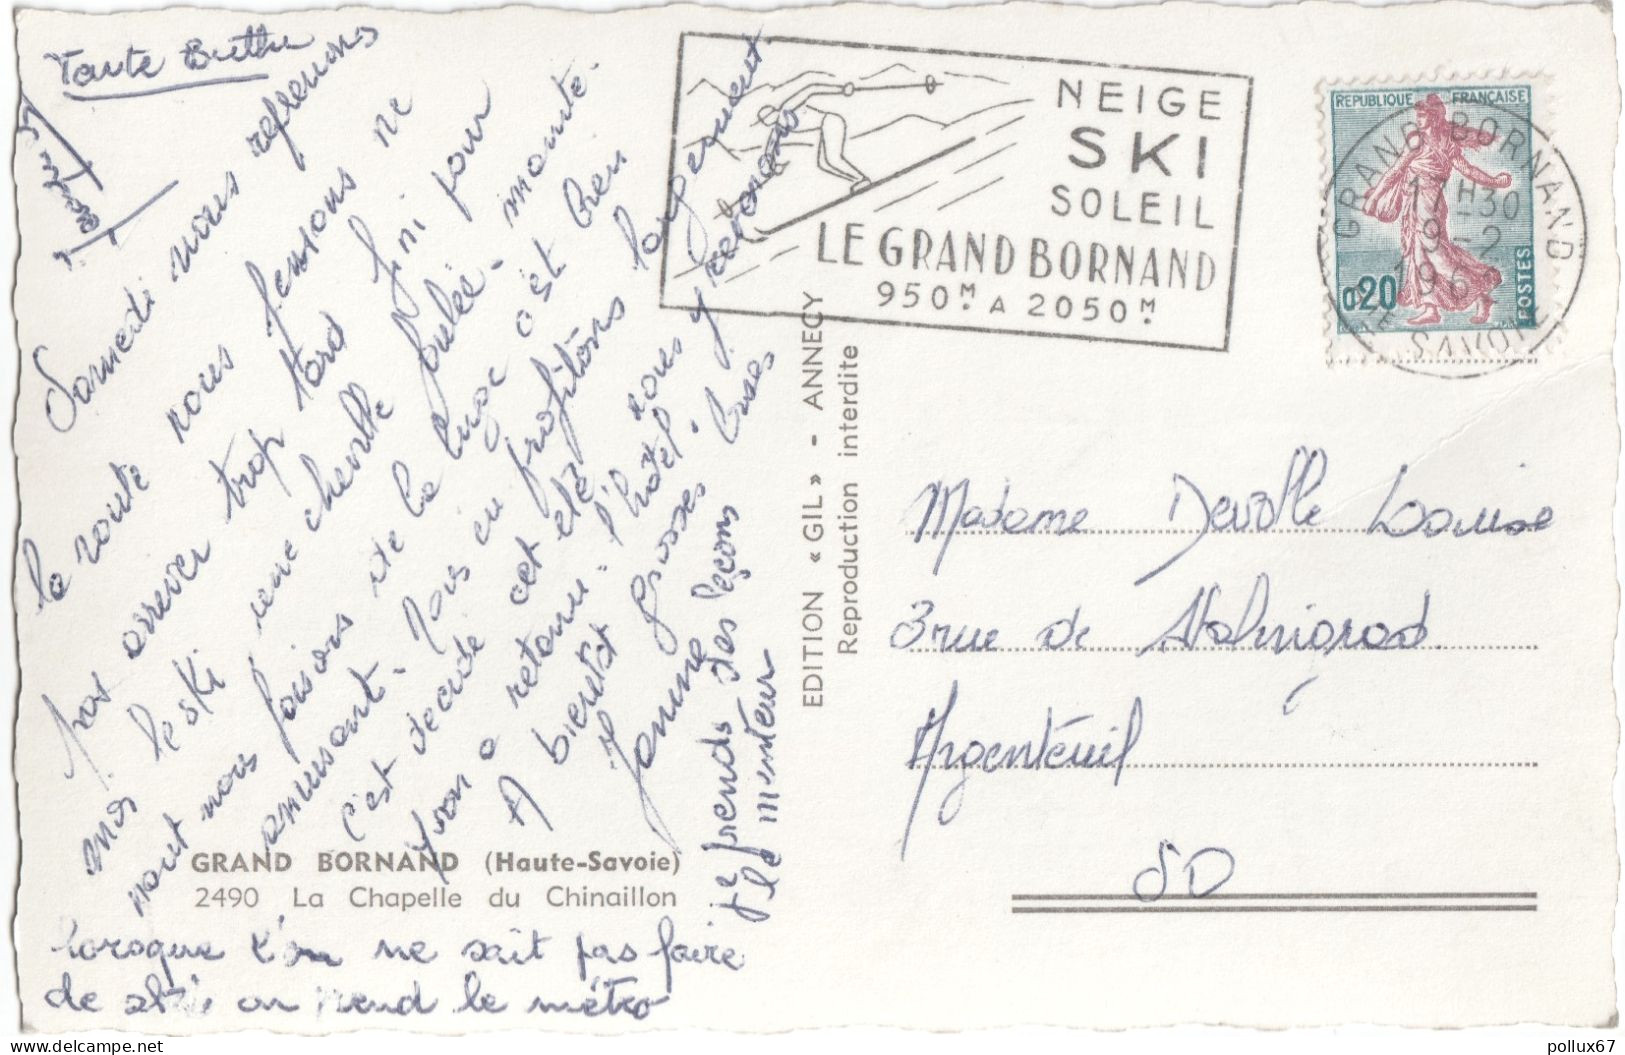 Tante
Samedi nous reprenons
la route nous pensons ne
pas arriver trop tard fini pour
moi le ski une cheville foulée - monte -
nous faisons de la luge c'est bien
amusant - nous en profitons largement
c'est décidé cet été nous y retournons
Yvan a retenu l'hôtel.
A bientôt grosses bises
Jeanne
je prends des leçons
le menteur
lorsque l'on ne sait pas faire
de ski on prend le métro
GRAND BORNAND (Haute-Savoie)
2490 La Chapelle du Chinaillon
EDITION «GIL» - ANNECY
Reproduction interdite
NEIGE
SKI
SOLEIL
LE GRAND BORNAND
950M A 2050M
REPUBLIQUE FRANÇAISE
0,20
POSTES
GRAND-BORNAND
17H30
9-2
196
SAVOIE
Madame Devolle Louise
3 rue de Stalingrad
Argenteuil
SO
pollux67